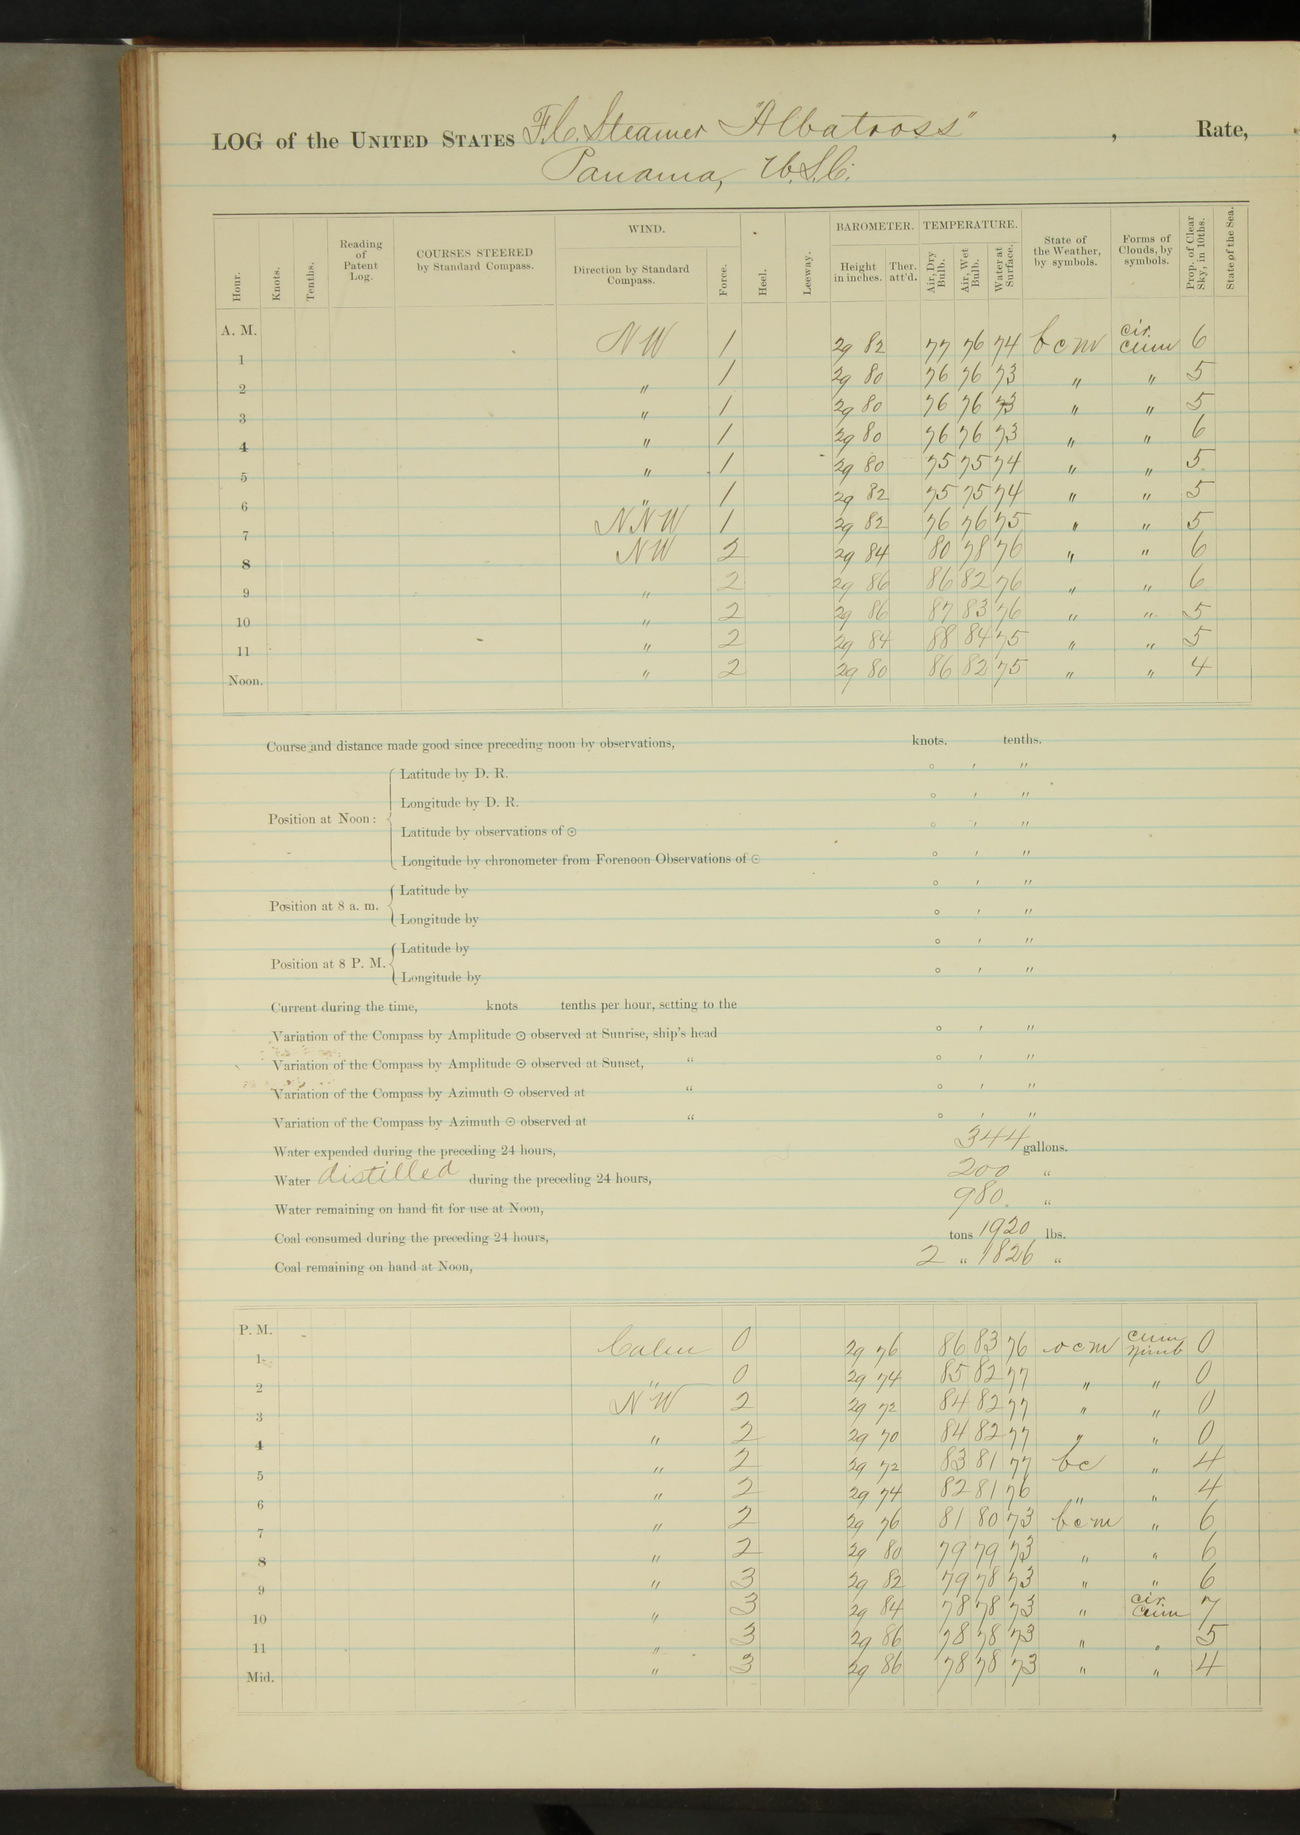 LOG of the UNITED STATES F.C. Steamer "Albatross", Rate,
Panama, U.S.C.
Hour. Knots. Tenths. Reading of Patent Log. COURSES STEERED by Standard Compass. WIND. Direction by Standard Compass. Force. Heel. Leeway. BAROMETER. Height in inches. Ther. att'd. TEMPERATURE. Air, Dry Bulb. Air, Wet Bulb. Water at Surface. State of the Weather, by symbols. Forms of Clouds, by symbols. Prop. of Clear Sky, in 10ths. State of the Sea.
A. M.
1 NW 1 29 82 77 76 74 bcm cir. cum 6
2 " 1 29 80 76 76 73 " " 5
3 " 1 29 80 76 76 73 " " 5
4 " 1 29 80 76 76 73 " " 6
5 " 1 29 80 75 75 74 " " 5
6 " 1 29 82 75 75 74 " " 5
7 NNW 1 29 82 76 76 75 " " 5
8 NW 2 29 84 80 78 76 " " 6
9 " 2 29 86 86 82 76 " " 6
10 " 2 29 86 87 83 76 " " 5
11 " 2 29 84 88 84 75 " " 5
Noon. " 2 29 80 86 82 75 " " 4
Course and distance made good since preceding noon by observations, knots. tenths.
Position at Noon: Latitude by D. R. ° ′ ″
Longitude by D. R. ° ′ ″
Latitude by observations of ⊙ ° ′ ″
Longitude by chronometer from Forenoon Observations of ⊙ ° ′ ″
Position at 8 a. m. Latitude by ° ′ ″
Longitude by ° ′ ″
Position at 8 P. M. Latitude by ° ′ ″
Longitude by ° ′ ″
Current during the time, knots tenths per hour, setting to the
Variation of the Compass by Amplitude ⊙ observed at Sunrise, ship's head ° ′ ″
Variation of the Compass by Amplitude ⊙ observed at Sunset, " ° ′ ″
Variation of the Compass by Azimuth ⊙ observed at " ° ′ ″
Variation of the Compass by Azimuth ⊙ observed at " ° ′ ″
Water expended during the preceding 24 hours, 344 gallons.
Water distilled during the preceding 24 hours, 200 "
Water remaining on hand fit for use at Noon, 980. "
Coal consumed during the preceding 24 hours, tons 1920 lbs.
Coal remaining on hand at Noon, 2 " 1826 "
P. M.
1 Calm 0 29 76 86 83 76 ocm cum Nimb 0
2 " 0 29 74 85 82 77 " " 0
3 NW 2 29 72 84 82 77 " " 0
4 " 2 29 70 84 82 77 " " 0
5 " 2 29 72 83 81 77 bc " 4
6 " 2 29 74 82 81 76 " " 4
7 " 2 29 76 81 80 73 bcm " 6
8 " 2 29 80 79 79 73 " " 6
9 " 3 29 82 79 78 73 " " 6
10 " 3 29 84 78 78 73 " cir. Cum 7
11 " 3 29 86 78 78 73 " " 5
Mid. " 3 29 86 78 78 73 " " 4